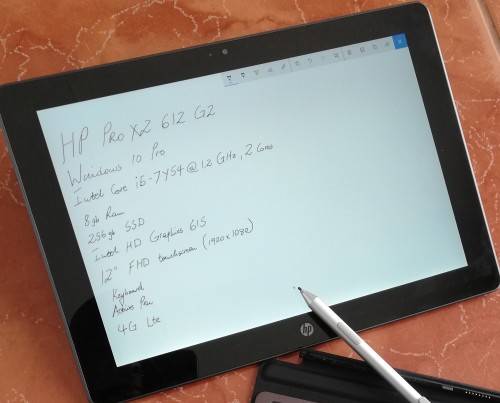 HP Pro X2 612 G2
Windows 10 Pro
Intel Core i5-7Y54 @ 1.2 GHz, 2 Cores
8gb Ram
256gb SSD
Intel HD Graphics 615
12" FHD touchscreen (1920x1080)
Keyboard
Active Pen
4G Lte
hp